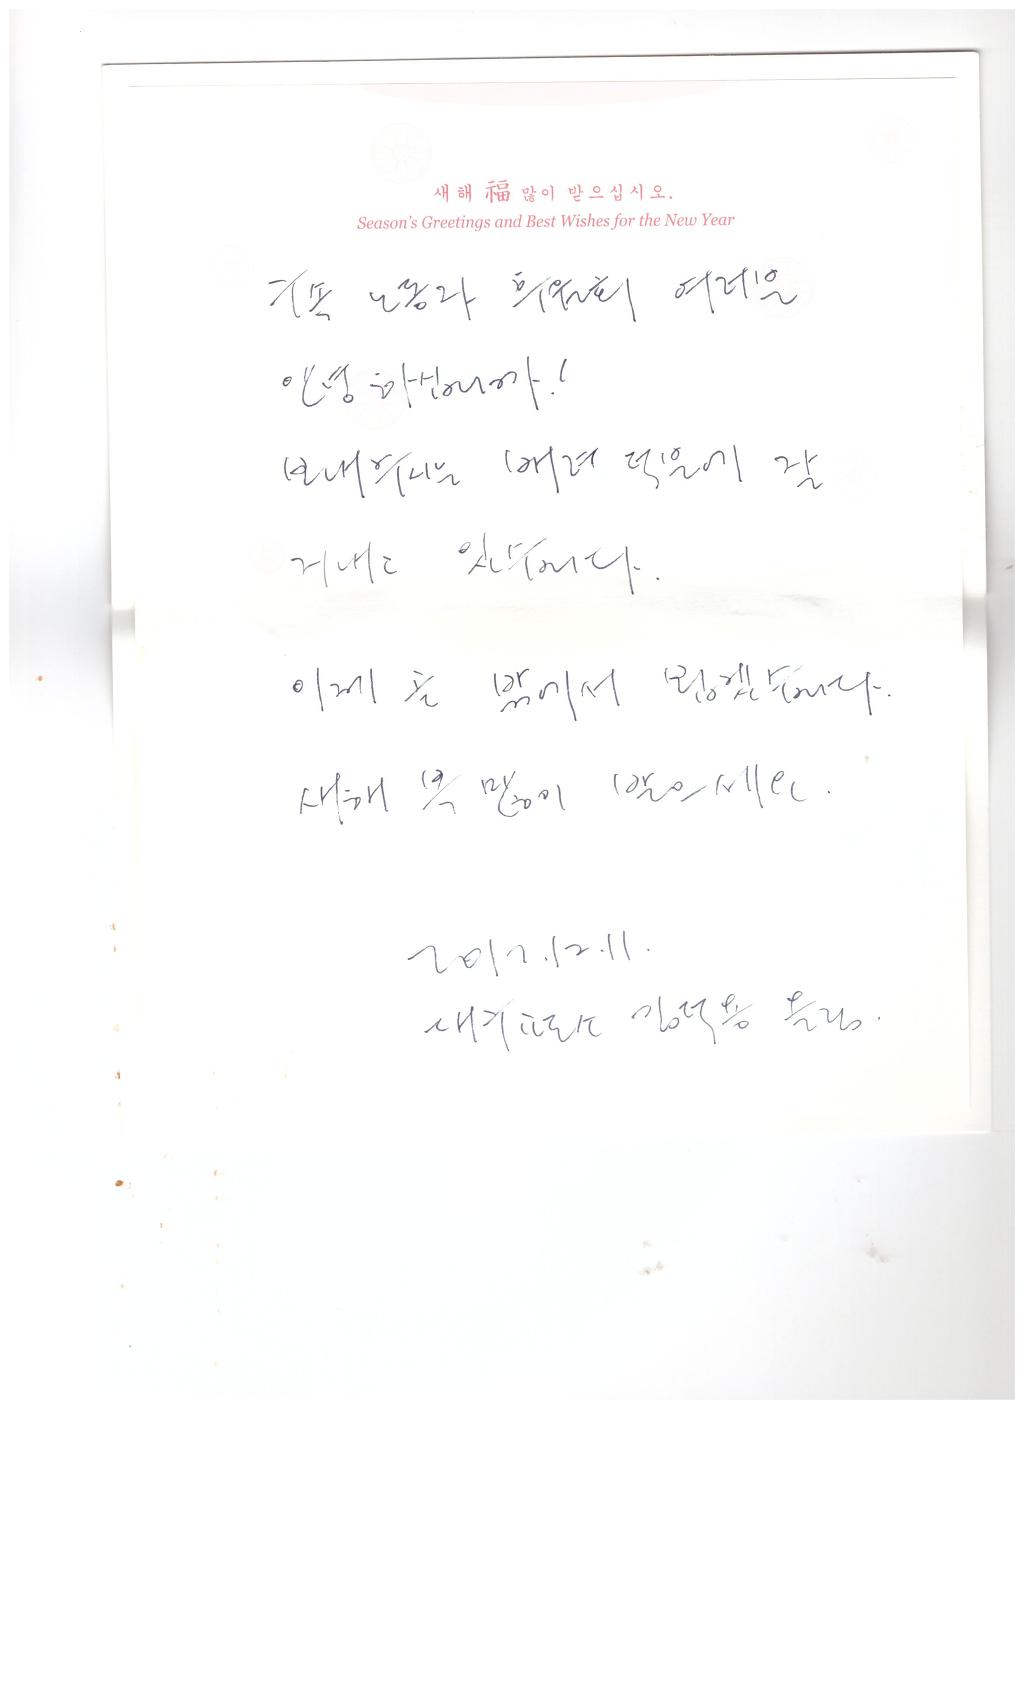 새해 福 많이 받으십시오.
Season's Greetings and Best Wishes for the New Year
구속 노동자 후원회 여러분
안녕하십니까!
보내주시는 배려 덕분에 잘
지내고 있습니다.
이제 곧 밖에서 뵙겠습니다.
새해 복 많이 받으세요.
2017.12.11.
김덕용 올림.